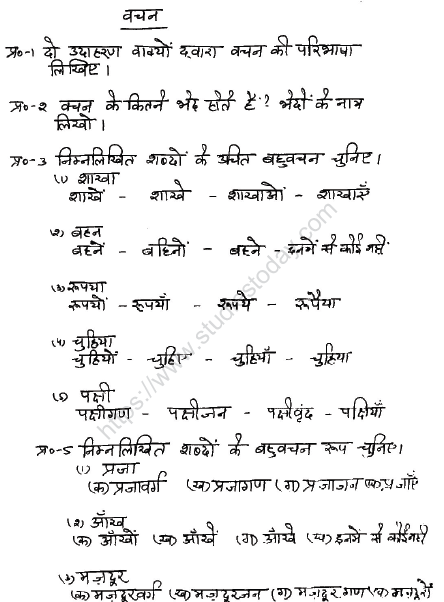 वचन
प्र०-1 दो उदाहरण वाक्यों द्वारा वचन की परिभाषा
लिखिए।
प्र०-2 वचन के कितने भेद होते हैं? भेदों के नाम
लिखो।
प्र०-3 निम्नलिखित शब्दों के उचित बहुवचन चुनिए।
(1) शाखा
शाखें - शाखे - शाखाओं - शाखाएँ
(२) बहन
बहनें - बहिनों - बहने - इनमें से कोई नहीं
(3) रूपया
रूपयों - रूपयाँ - रूपये - रूपैया
(4) चुहिया
चुहियों - चुहिए - चुहियाँ - चुहिया
(5) पक्षी
पक्षीगण - पक्षीजन - पक्षीवृंद - पक्षियाँ
प्र०-5 निम्नलिखित शब्दों के बहुवचन रूप चुनिए।
(1) प्रजा
(क) प्रजावर्ग (ख) प्रजागण (ग) प्रजाजन (घ) प्रजाएँ
(२) आँख
(क) आँखों (ख) आँखें (ग) आँखे (घ) इनमें से कोई नहीं
(3) मज़दूर
(क) मज़दूरवर्ग (ख) मज़दूरजन (ग) मज़दूर गण (घ) मज़दूरों
https://www.studiestoday.com